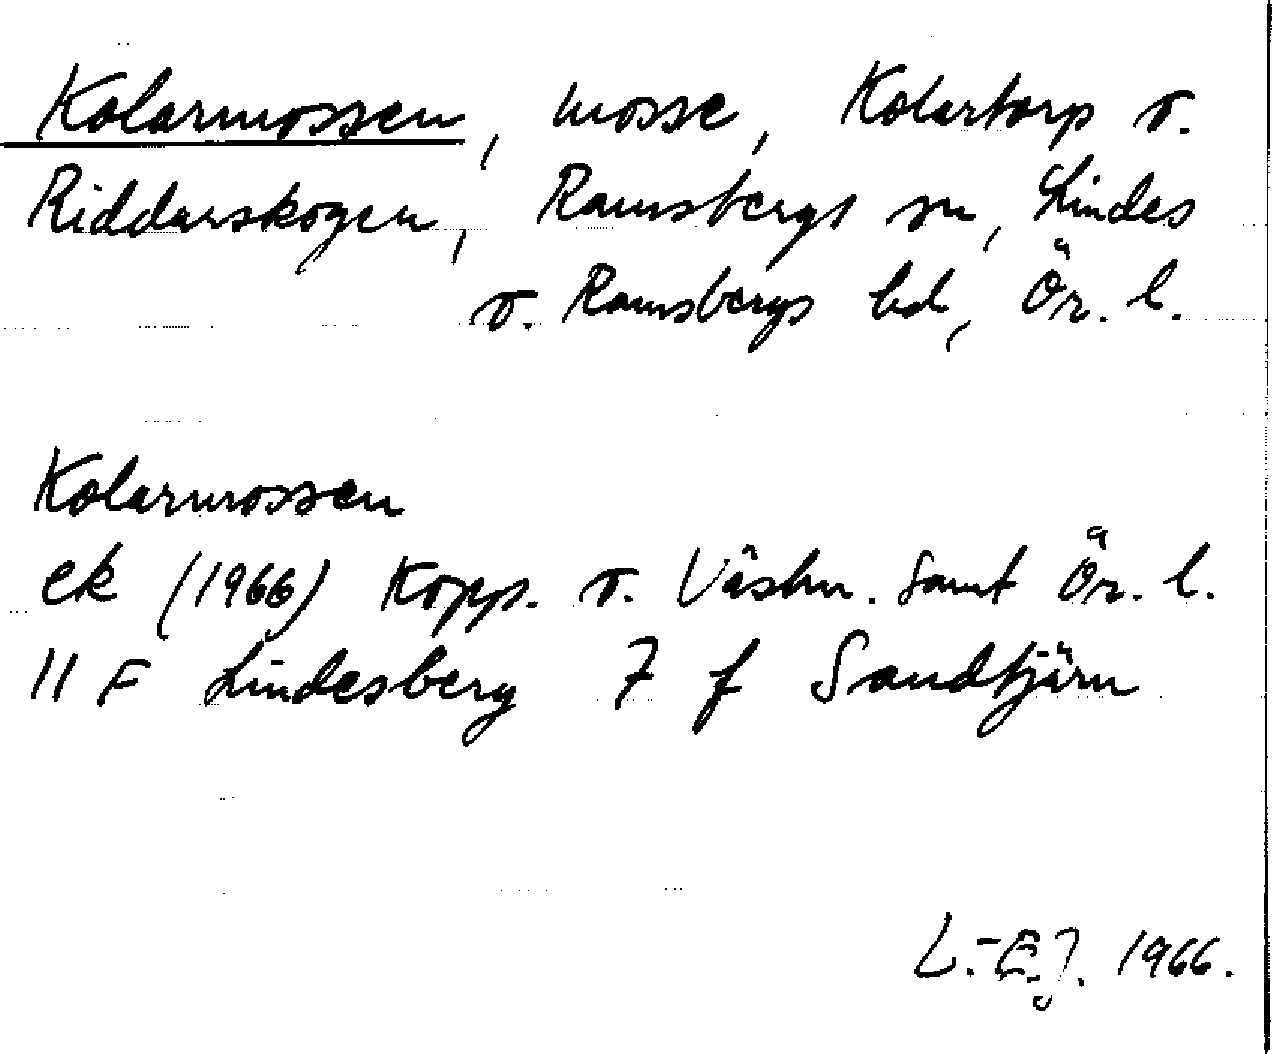 Kolarmossen, mosse, Kolartorp o.
Riddarskogen, Ramsbergs sn, Lindes
o. Ramsbergs bd, Ör. l.
Kolarmossen
ek (1966) Kopp. o. Västm. samt Ör. l.
11 F Lindesberg 7 f Sandtjärn
L.-E.J. 1966.